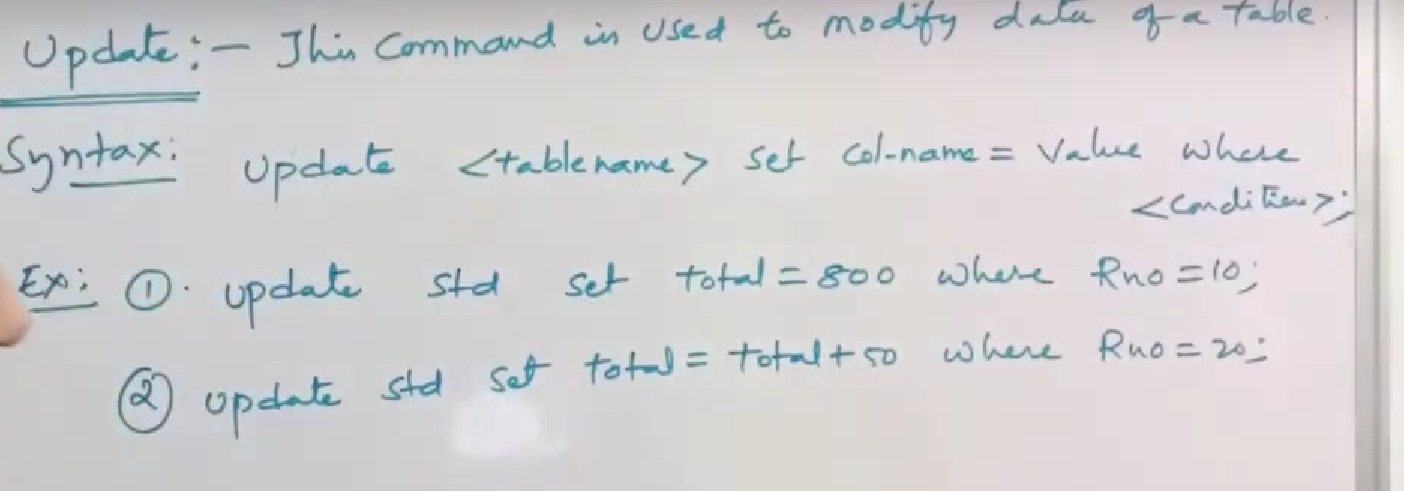 Update:- This Command is used to modify data of a table.
Syntax: Update <tablename> set Col-name = Value where
<condition>;
Ex: ①. update std set total = 800 where Rno = 10;
② update std set total = total + 50 where Rno = 20;